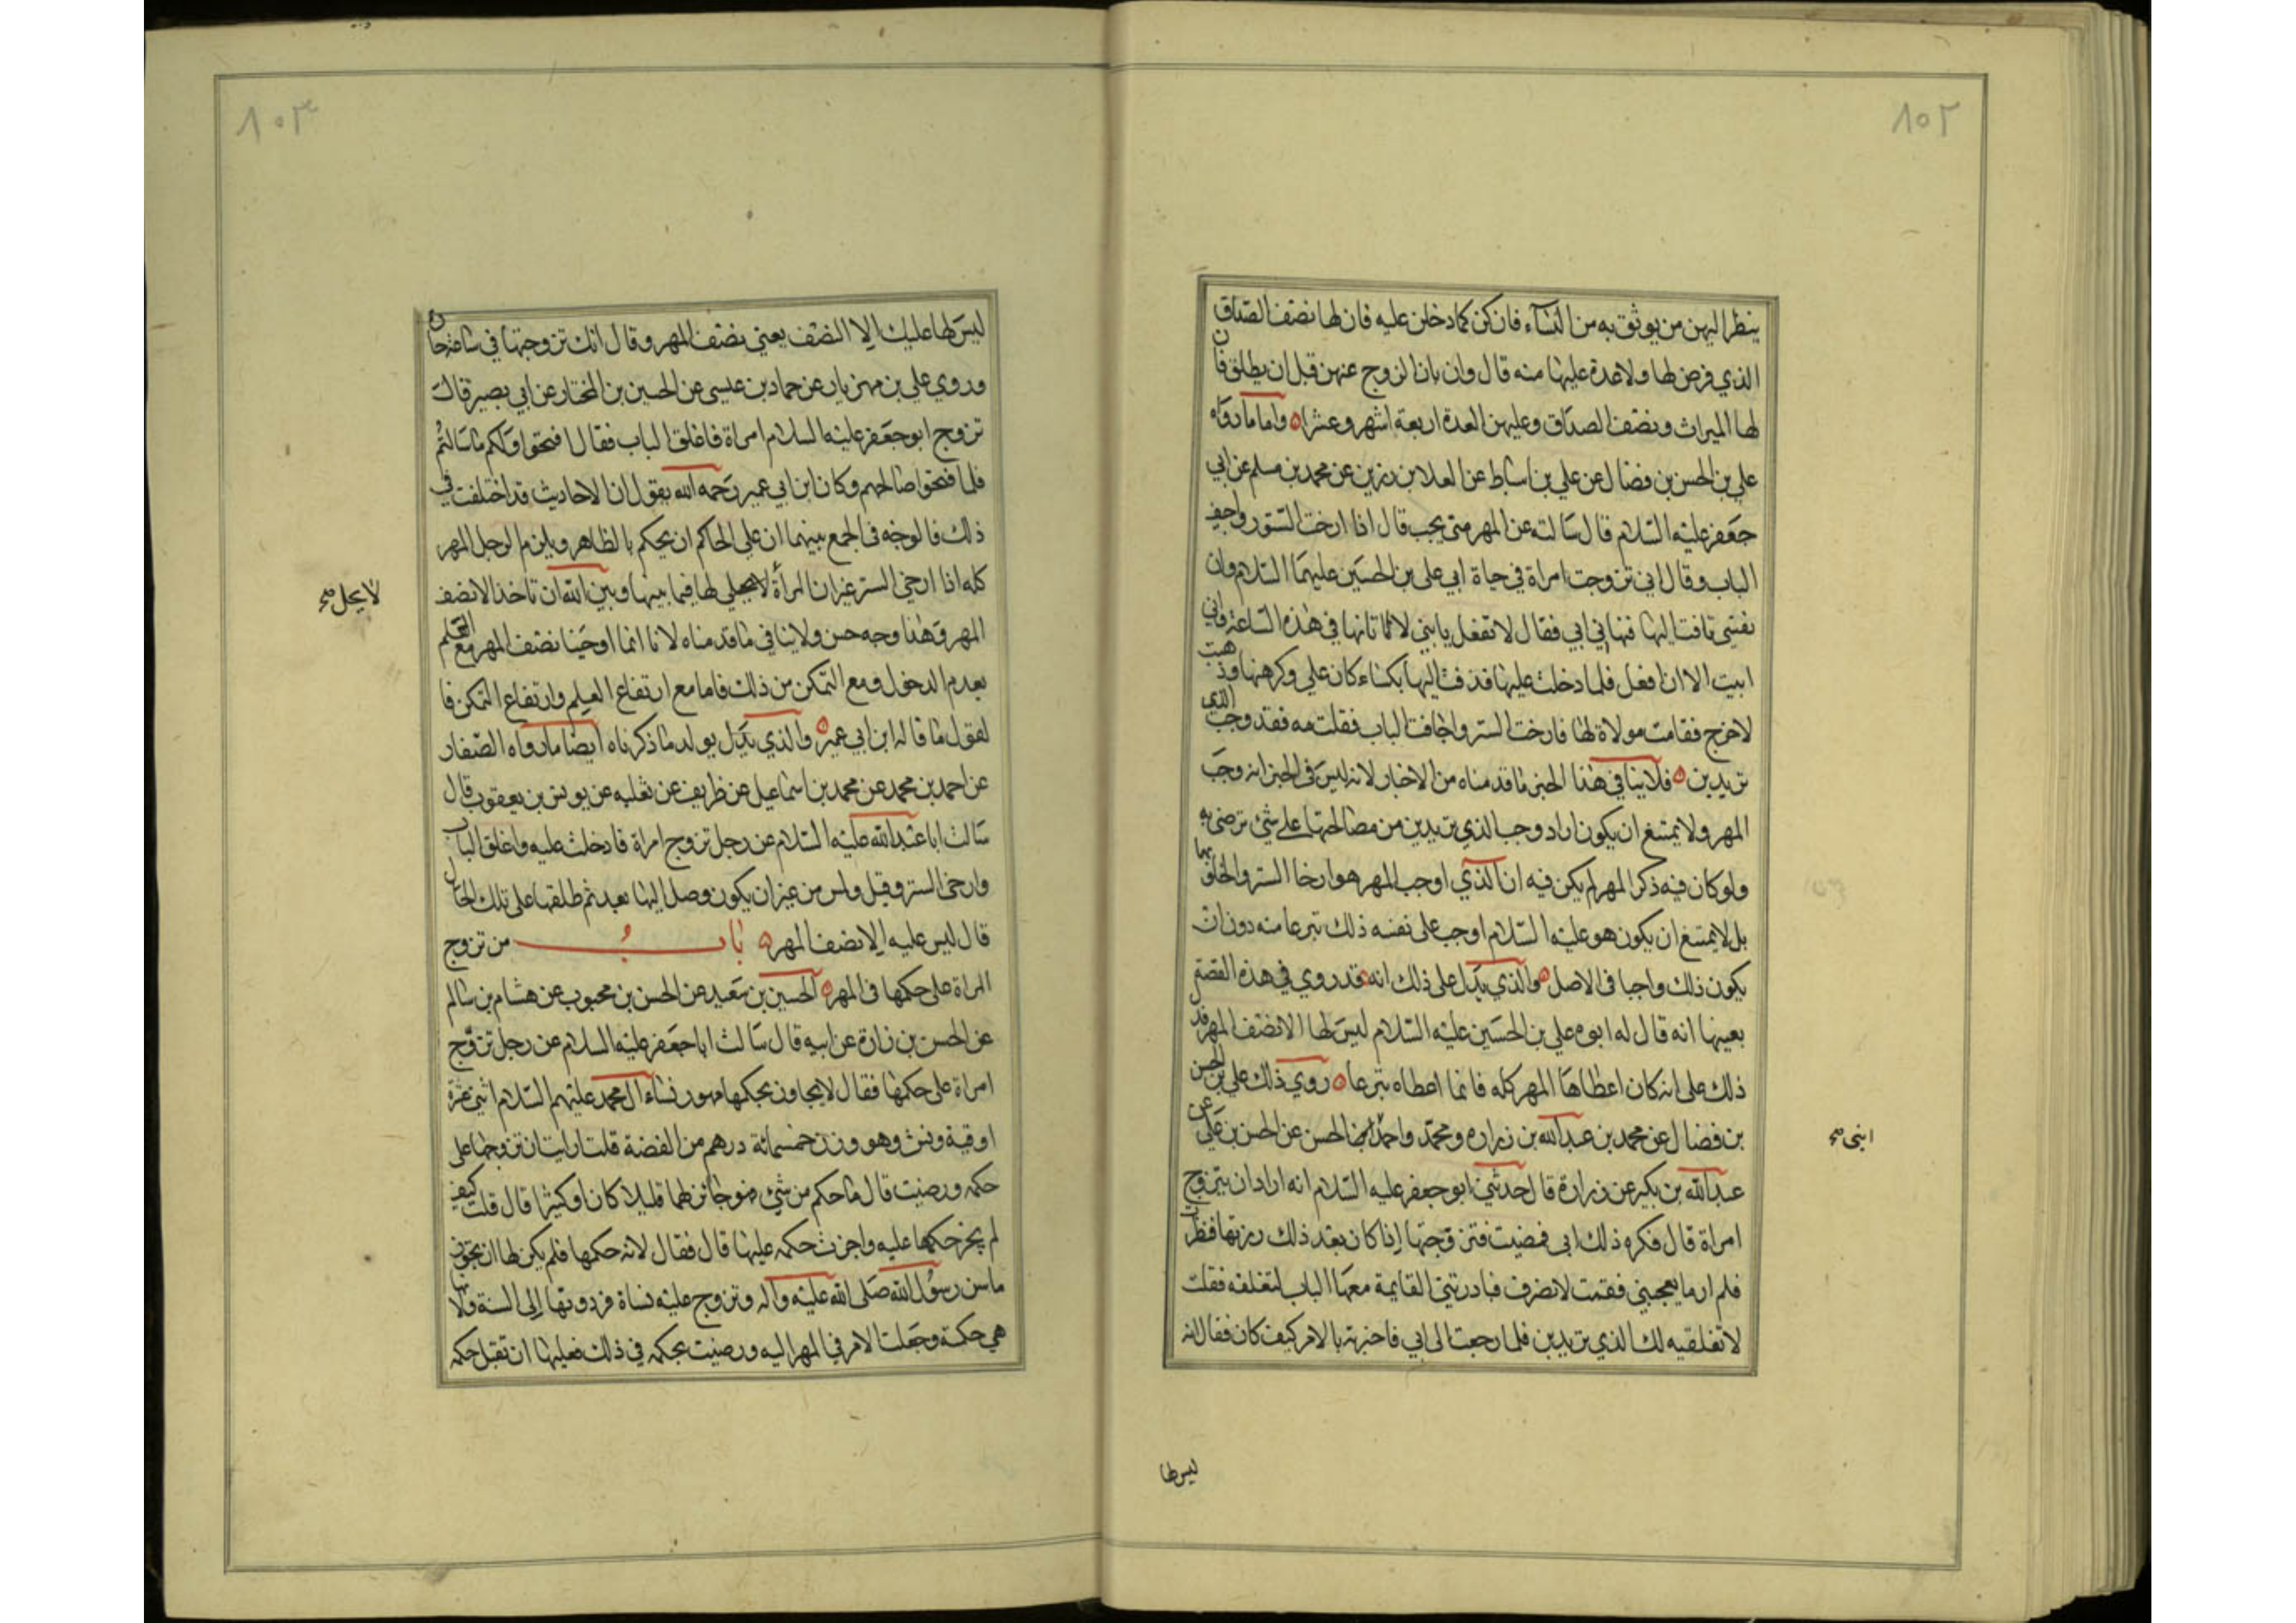 ١٥٢
ينظر اليهن من يوثق به من النسآء فان كن كما دخلن عليه فان لها نصف الصداق
الذي فرض لها ولا عدة عليها منه قال وان بان الزوج عنهن قبل ان يطلق فان
لها الميراث ونصف الصداق وعليهن العدة اربعة اشهر وعشرا واما ما رواه
علي بن الحسن بن فضال عن علي بن اسباط عن العلا بن رزين عن محمد بن مسلم عن ابي
جعفر عليه السلام قال سالته عن المهر متى يجب قال اذا ارخت الستور واجيف
الباب وقال اني تزوجت امراة في حياة ابي علي بن الحسين عليهما السلام وان
نفسي تاقت اليها فنهاني ابي فقال لا تفعل يا بني لا تاتها في هذه الساعة فاني
ابيت الا ان افعل فلما دخلت عليها قذفت اليها بكساء كان علي وكرهتها وذهبت
لاخرج فقامت مولاة لها فارخت الستر واجافت الباب فقلت مه فقد وجب الذي
تريدين فلا ينافي هذا الخبر ما قدمناه من الاخبار لانه ليس في الخبر انه وجب
المهر ولا يمتنع ان يكون اراد وجب الذي تريدين من مصالحتها على شئ ترضى به
ولو كان فيه ذكر المهر لم يكن فيه ان الذي اوجب المهر هو ارخا الستر والخلو بها
بل لا يمتنع ان يكون هو عليه السلام اوجب على نفسه ذلك تبرعا منه دون ان
يكون ذلك واجبا في الاصل والذي يدل على ذلك انه قد روي في هذه القصة
بعينها انه قال له ابوه علي بن الحسين عليه السلام ليس لها الا نصف المهر فدل
ذلك على انه كان اعطاها المهر كله فانما اعطاه تبرعا روي ذلك علي بن الحسن
بن فضال عن محمد بن عبد الله بن زراره ومحمد واحمد ابنا الحسن عن الحسن بن علي عن
عبد الله بن بكير عن زرارة قال حدثني ابو جعفر عليه السلام انه اراد ان يتزوج
امراة قال فكره ذلك ابي فمضيت فتزوجتها اذا كان بعد ذلك زرتها فنظرت
فلم ار ما يعجبني فقمت لانصرف فبادرتني القايمة معها الباب لتغلقه فقلت
لا تغلقيه لك الذي تريدين فلما رجعت الى ابي فاخبرته بالامر كيف كان فقال انه
ابنى صح
ليس لها
١٥٣
ليس لها عليك الا النصف يعني نصف المهر وقال انك تزوجتها في ساعة حارة
وروي علي بن مهزيار عن حماد بن عيسى عن الحسين بن المختار عن ابي بصير قال
تزوج ابو جعفر عليه السلام امراة فاغلق الباب فقال افتحوا ولكم ما سالتم
فلما فتحوا صالحهم وكان ابن ابي عمير رحمه الله يقول ان الاحاديث قد اختلفت في
ذلك فالوجه في الجمع بينهما ان على الحاكم ان يحكم بالظاهر ويلزم الرجل المهر
كله اذا ارخى الستر غير ان المرأة لا يحل لها فيما بينها وبين الله ان تاخذ الا نصف
المهر وهذا وجه حسن ولا ينافي ما قدمناه لانا انما اوجبنا نصف المهر مع العلم
بعدم الدخول ومع التمكن من ذلك فاما مع ارتفاع العلم وارتفاع التمكن فا
لقول ما قاله ابن ابي عمير والذي يدل يولد ما ذكرناه ايضا ما رواه الصفار
عن احمد بن محمد عن محمد بن اسماعيل عن ظريف عن ثعلبه عن يونس بن يعقوب قال
سالت ابا عبد الله عليه السلام عن رجل تزوج امراة فادخلت عليه واغلق الباب
وارخى الستر وقبل ولمس من غير ان يكون وصل اليها بعد ثم طلقها على تلك الحال
قال ليس عليه الا نصف المهر باب من تزوج
المراة على حكمها في المهر الحسين بن سعيد عن الحسن بن محبوب عن هشام بن سالم
عن الحسن بن زرارة عن ابيه قال سالت ابا جعفر عليه السلام عن رجل تزوج
امراة على حكمها فقال لا يجاوز بحكمها مهور نساء ال محمد عليهم السلام اثني عشرة
اوقية ونش وهو وزن خمسمائة درهم من الفضة قلت ارايت ان تزوجها على
حكمه ورضيت قال ما حكم من شئ فهو جائز لها قليلا كان او كثيرا قال قلت كيف
لم يجز حكمها عليه واجزت حكمه عليها قال فقال لانه حكمها فلم يكن لها ان تجوز
ما سن رسول الله صلى الله عليه واله وتزوج عليه نساه فردوتها الى السنة ولانها
هي حكمته وجعلت الامر في المهر اليه ورضيت بحكمه في ذلك فعليها ان تقبل حكمه
لا يحل صح